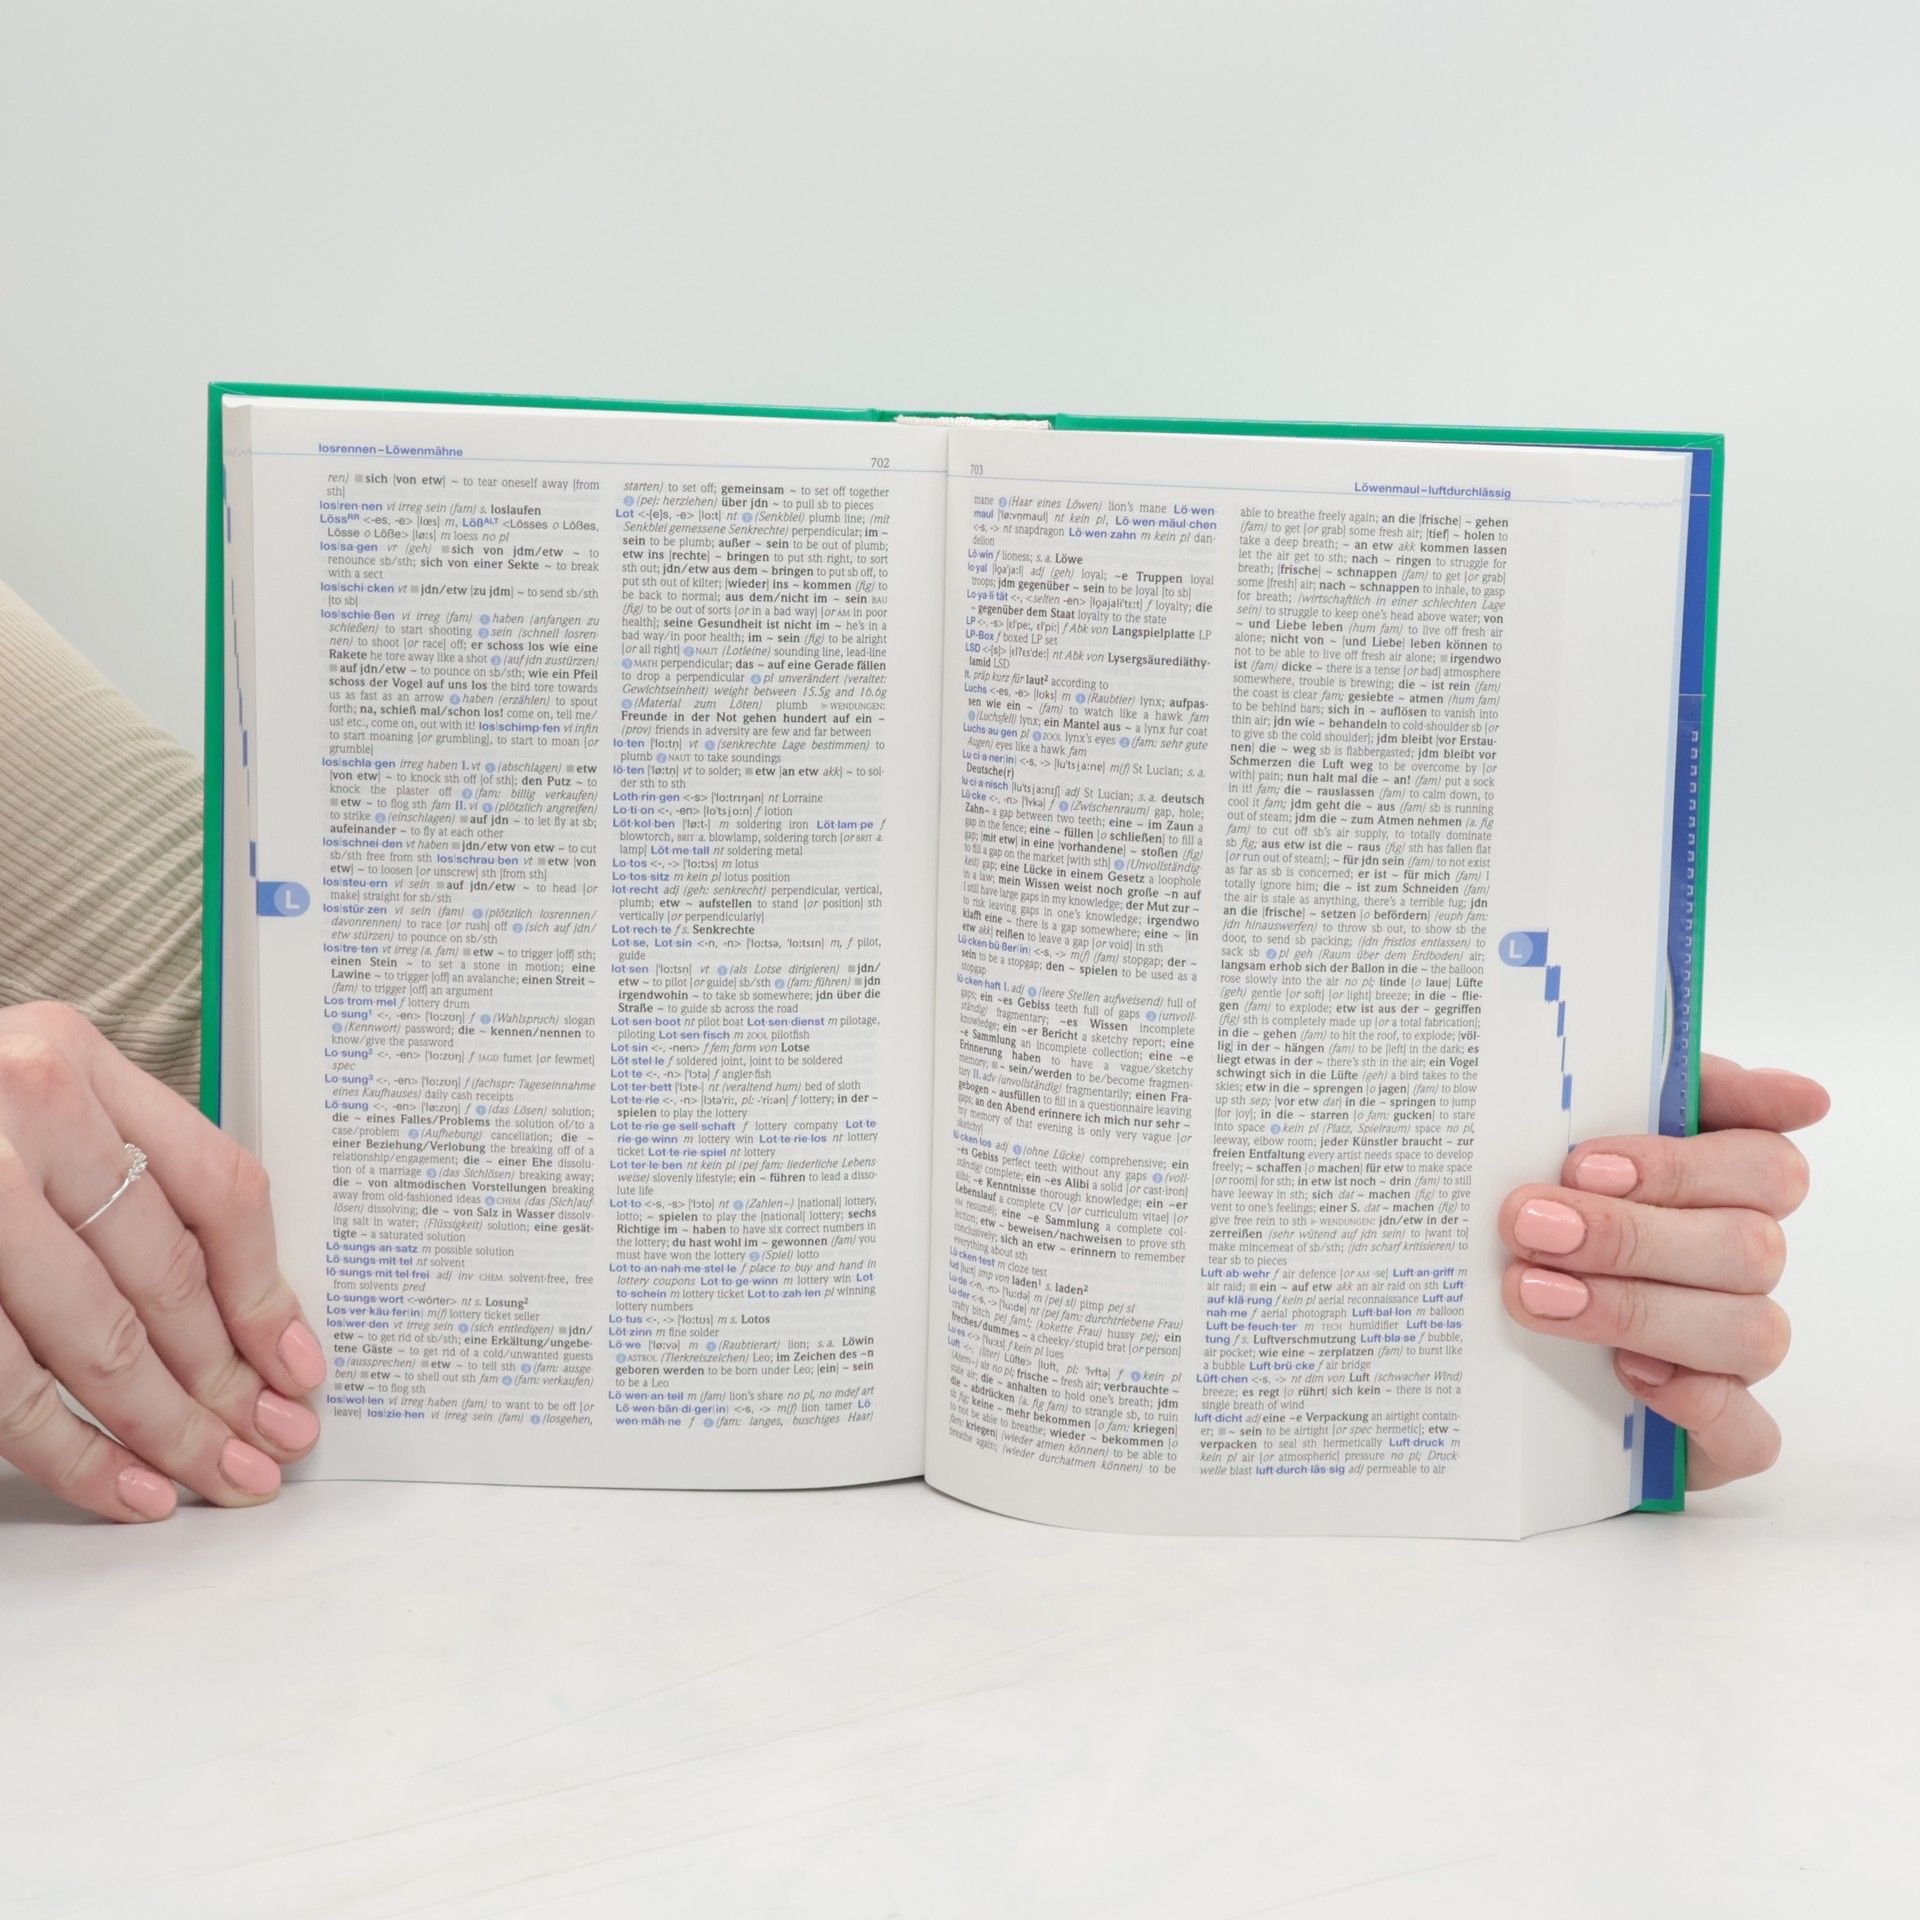 losrennen–Löwenmähne
702
ren) ■ sich |von etw| ~ to tear oneself away |from
sth|
los|ren·nen vi irreg sein (fam) s. loslaufen
Lössᴿᴿ <-es, -e> |lœs| m, Lößᴬᴸᵀ <Lösses o Lößes,
Lösse o Löße> |lø:s| m loess no pl
los|sa·gen vr (geh) ■ sich von jdm/etw ~ to
renounce sb/sth; sich von einer Sekte ~ to break
with a sect
los|schi·cken vt ■ jdn/etw |zu jdm| ~ to send sb/sth
|to sb|
los|schie·ßen vi irreg (fam) ① haben (anfangen zu
schießen) to start shooting ② sein (schnell losren-
nen) to shoot |or race| off; er schoss los wie eine
Rakete he tore away like a shot ③ (auf jdn zustürzen)
■ auf jdn/etw ~ to pounce on sb/sth; wie ein Pfeil
schoss der Vogel auf uns los the bird tore towards
us as fast as an arrow ④ haben (erzählen) to spout
forth; na, schieß mal/schon los! come on, tell me/
us! etc., come on, out with it! los|schimp·fen vi infin
to start moaning |or grumbling|, to start to moan |or
grumble|
los|schla·gen irreg haben I. vt ① (abschlagen) ■ etw
|von etw| ~ to knock sth off |of sth|; den Putz ~ to
knock the plaster off ② (fam: billig verkaufen)
■ etw ~ to flog sth fam II. vi ① (plötzlich angreifen)
to strike ② (einschlagen) ■ auf jdn ~ to let fly at sb;
aufeinander ~ to fly at each other
los|schnei·den vt haben ■ jdn/etw von etw ~ to cut
sb/sth free from sth los|schrau·ben vt ■ etw |von
etw| ~ to loosen |or unscrew| sth |from sth|
los|steu·ern vi sein ■ auf jdn/etw ~ to head |or
make| straight for sb/sth
los|stür·zen vi sein (fam) ① (plötzlich losrennen/
davonrennen) to race |or rush| off ② (sich auf jdn/
etw stürzen) to pounce on sb/sth
los|tre·ten vt irreg (a. fam) ■ etw ~ to trigger |off| sth;
einen Stein ~ to set a stone in motion; eine
Lawine ~ to trigger |off| an avalanche; einen Streit ~
(fam) to trigger |off| an argument
Los·trom·mel f lottery drum
Lo·sung¹ <-, -en> |'lo:zʊŋ| f ① (Wahlspruch) slogan
② (Kennwort) password; die ~ kennen/nennen to
know/give the password
Lo·sung² <-, -en> |'lo:zʊŋ| f JAGD fumet |or fewmet|
spec
Lo·sung³ <-, -en> |'lo:zʊŋ| f (fachspr: Tageseinnahme
eines Kaufhauses) daily cash receipts
Lö·sung <-, -en> |'lø:zʊŋ| f ① (das Lösen) solution;
die ~ eines Falles/Problems the solution of/to a
case/problem ② (Aufhebung) cancellation; die ~
einer Beziehung/Verlobung the breaking off of a
relationship/engagement; die ~ einer Ehe dissolu-
tion of a marriage ③ (das Sichlösen) breaking away;
die ~ von altmodischen Vorstellungen breaking
away from old-fashioned ideas ④ CHEM (das |Sich|auf-
lösen) dissolving; die ~ von Salz in Wasser dissolv-
ing salt in water; (Flüssigkeit) solution; eine gesät-
tigte ~ a saturated solution
Lö·sungs·an·satz m possible solution
Lö·sungs·mit·tel nt solvent
lö·sungs·mit·tel·frei adj inv CHEM solvent-free, free
from solvents pred
Lo·sungs·wort <-wörter> nt s. Losung²
Los·ver·käu·fer(in) m(f) lottery ticket seller
los|wer·den vt irreg sein ① (sich entledigen) ■ jdn/
etw ~ to get rid of sb/sth; eine Erkältung/ungebe-
tene Gäste ~ to get rid of a cold/unwanted guests
② (aussprechen) ■ etw ~ to tell sth ③ (fam: ausge-
ben) ■ etw ~ to shell out sth fam ④ (fam: verkaufen)
■ etw ~ to flog sth
los|wol·len vi irreg haben (fam) to want to be off |or
leave| los|zie·hen vi irreg sein (fam) ① (losgehen,
starten) to set off; gemeinsam ~ to set off together
② (pej: herziehen) über jdn ~ to pull sb to pieces
Lot <-[e]s, -e> |lo:t| nt ① (Senkblei) plumb line; (mit
Senkblei gemessene Senkrechte) perpendicular; im ~
sein to be plumb; außer ~ sein to be out of plumb;
etw ins |rechte| ~ bringen to put sth right, to sort
sth out; jdn/etw aus dem ~ bringen to put sb off, to
put sth out of kilter; |wieder| ins ~ kommen (fig) to
be back to normal; aus dem/nicht im ~ sein BAU
(fig) to be out of sorts |or in a bad way| |or AM in poor
health|; seine Gesundheit ist nicht im ~ he's in a
bad way/in poor health; im ~ sein (fig) to be alright
|or all right| ② NAUT (Lotleine) sounding line, lead-line
③ MATH perpendicular; das ~ auf eine Gerade fällen
to drop a perpendicular ④ pl unverändert (veraltet:
Gewichtseinheit) weight between 15.5g and 16.6g
⑤ (Material zum Löten) plumb ▶ WENDUNGEN:
Freunde in der Not gehen hundert auf ein ~
(prov) friends in adversity are few and far between
lo·ten ['lo:tn̩] vt ① (senkrechte Lage bestimmen) to
plumb ② NAUT to take soundings
lö·ten ['lø:tn̩] vt to solder; ■ etw |an etw akk| ~ to sol-
der sth to sth
Loth·rin·gen <-s> ['lo:trɪŋən] nt Lorraine
Lo·ti·on <-, -en> [lo'tsi̯o:n] f lotion
Löt·kol·ben ['lø:t-] m soldering iron Löt·lam·pe f
blowtorch, BRIT a. blowlamp, soldering torch |or BRIT a.
lamp| Löt·me·tall nt soldering metal
Lo·tos <-, -> ['lo:tɔs] m lotus
Lo·tos·sitz m kein pl lotus position
lot·recht adj (geh: senkrecht) perpendicular, vertical,
plumb; etw ~ aufstellen to stand |or position| sth
vertically |or perpendicularly|
Lot·rech·te f s. Senkrechte
Lot·se, Lot·sin <-n, -n> |'lo:tsə, 'lo:tsɪn| m, f pilot,
guide
lot·sen ['lo:tsn̩] vt ① (als Lotse dirigieren) ■ jdn/
etw ~ to pilot |or guide| sb/sth ② (fam: führen) ■ jdn
irgendwohin ~ to take sb somewhere; jdn über die
Straße ~ to guide sb across the road
Lot·sen·boot nt pilot boat Lot·sen·dienst m pilotage,
piloting Lot·sen·fisch m ZOOL pilotfish
Lot·sin <-, -nen> f fem form von Lotse
Löt·stel·le f soldered joint, joint to be soldered
Lot·te <-, -n> |'lɔtə| f angler-fish
Lot·ter·bett ['lɔtɐ-] nt (veraltend hum) bed of sloth
Lot·te·rie <-, -n> |lɔtə'ri:, pl: -'ri:ən| f lottery; in der ~
spielen to play the lottery
Lot·te·rie·ge·sell·schaft f lottery company Lot·te·
rie·ge·winn m lottery win Lot·te·rie·los nt lottery
ticket Lot·te·rie·spiel nt lottery
Lot·ter·le·ben nt kein pl (pej fam: liederliche Lebens-
weise) slovenly lifestyle; ein ~ führen to lead a disso-
lute life
Lot·to <-s, -s> ['lɔto] nt ① (Zahlen~) |national| lottery,
lotto; ~ spielen to play the |national| lottery; sechs
Richtige im ~ haben to have six correct numbers in
the lottery; du hast wohl im ~ gewonnen (fam) you
must have won the lottery ② (Spiel) lotto
Lot·to·an·nah·me·stel·le f place to buy and hand in
lottery coupons Lot·to·ge·winn m lottery win Lot·
to·schein m lottery ticket Lot·to·zah·len pl winning
lottery numbers
Lo·tus <-, -> |'lo:tʊs| m s. Lotos
Löt·zinn m fine solder
Lö·we ['lø:və] m ① (Raubtierart) lion; s. a. Löwin
② ASTROL (Tierkreiszeichen) Leo; im Zeichen des ~n
geboren werden to be born under Leo; |ein| ~ sein
to be a Leo
Lö·wen·an·teil m (fam) lion's share no pl, no indef art
Lö·wen·bän·di·ger(in) <-s, -> m(f) lion tamer Lö·
wen·mäh·ne f ① (fam: langes, buschiges Haar)
L
703
Löwenmaul–luftdurchlässig
mane ② (Haar eines Löwen) lion's mane Lö·wen·
maul ['lø:vn̩maul] nt kein pl, Lö·wen·mäul·chen
<-s, -> nt snapdragon Lö·wen·zahn m kein pl dan-
delion
Lö·win f lioness; s. a. Löwe
lo·yal |lo̯a'ja:l| adj (geh) loyal; ~e Truppen loyal
troops; jdm gegenüber ~ sein to be loyal [to sb]
Lo·ya·li·tät <-, <selten -en> |lo̯ajali'tɛ:t| f loyalty; die
~ gegenüber dem Staat loyalty to the state
LP <-, -s> |ɛl'pe:, ɛl'pi:| f Abk von Langspielplatte LP
LP-Box f boxed LP set
LSD <-[s]> |ɛlʔɛs'de:| nt Abk von Lysergsäurediäthy-
lamid LSD
lt. präp kurz für laut² according to
Luchs <-es, -e> |lʊks| m ① (Raubtier) lynx; aufpas-
sen wie ein ~ (fam) to watch like a hawk fam
② (Luchsfell) lynx; ein Mantel aus ~ a lynx fur coat
Luchs·au·gen pl ① ZOOL lynx's eyes ② (fam: sehr gute
Augen) eyes like a hawk fam
Lu·ci·a·ner(in) <-s, -> |lu'tsi̯a:nɐ| m(f) St Lucian; s. a.
Deutsche(r)
lu·ci·a·nisch |lu'tsi̯a:nɪʃ| adj St Lucian; s. a. deutsch
Lü·cke <-, -n> |'lʏkə| f ① (Zwischenraum) gap, hole;
Zahn~ a gap between two teeth; eine ~ im Zaun a
gap in the fence; eine ~ füllen |o schließen| to fill a
gap; |mit etw| in eine |vorhandene| ~ stoßen (fig)
to fill a gap on the market |with sth| ② (Unvollständig-
keit) gap; eine Lücke in einem Gesetz a loophole
in a law; mein Wissen weist noch große ~n auf
I still have large gaps in my knowledge; der Mut zur ~
to risk leaving gaps in one's knowledge; irgendwo
klafft eine ~ there's a gap somewhere; eine ~ |in
etw akk| reißen to leave a gap |or void| in sth
Lü·cken·bü·ßer(in) <-s, -> m(f) (fam) stopgap; der ~
sein to be a stopgap; den ~ spielen to be used as a
stopgap
lü·cken·haft I. adj ① (leere Stellen aufweisend) full of
gaps; ein ~es Gebiss teeth full of gaps ② (unvoll-
ständig) fragmentary; ~es Wissen incomplete
knowledge; ein ~er Bericht a sketchy report; eine
~e Sammlung an incomplete collection; eine ~e
Erinnerung haben to have a vague/sketchy
memory; ■ ~ sein/werden to be/become fragmen-
tary II. adv (unvollständig) fragmentarily; einen Fra-
gebogen ~ ausfüllen to fill in a questionnaire leaving
gaps; an den Abend erinnere ich mich nur sehr ~
my memory of that evening is only very vague |or
sketchy|
lü·cken·los adj ① (ohne Lücke) comprehensive; ein
~es Gebiss perfect teeth without any gaps ② (voll-
ständig) complete; ein ~es Alibi a solid |or cast-iron|
alibi; ~e Kenntnisse thorough knowledge; ein ~er
Lebenslauf a complete CV |or curriculum vitae| |or
AM resumé|; eine ~e Sammlung a complete col-
lection; etw ~ beweisen/nachweisen to prove sth
conclusively; sich an etw ~ erinnern to remember
everything about sth
Lü·cken·test m cloze test
lud |lu:t| imp von laden¹ s. laden²
Lu·de <-n, -n> |'lu:də| m (pej sl) pimp pej sl
Lu·der <-s, -> |'lu:dɐ| nt (pej fam: durchtriebene Frau)
crafty bitch pej fam!; (kokette Frau) hussy pej; ein
freches/dummes ~ a cheeky/stupid brat |or person|
Lu·es <-> |'lu:ɛs| f kein pl lues
Luft <-, (liter) Lüfte> |lʊft, pl: 'lʏftə| f ① kein pl
(Atem~) air no pl; frische ~ fresh air; verbrauchte ~
stale air; die ~ anhalten to hold one's breath; jdm
die ~ abdrücken (a. fig fam) to strangle sb, to ruin
sb fig; keine ~ mehr bekommen |o fam: kriegen|
to not be able to breathe; wieder ~ bekommen |o
fam: kriegen| (wieder atmen können) to be able to
breathe again; (wieder durchatmen können) to be
able to breathe freely again; an die |frische| ~ gehen
(fam) to get |or grab| some fresh air; |tief| ~ holen to
take a deep breath; ~ an etw akk kommen lassen
let the air get to sth; nach ~ ringen to struggle for
breath; |frische| ~ schnappen (fam) to get |or grab|
some |fresh| air; nach ~ schnappen to inhale, to gasp
for breath; (wirtschaftlich in einer schlechten Lage
sein) to struggle to keep one's head above water; von
~ und Liebe leben (hum fam) to live off fresh air
alone; nicht von ~ |und Liebe| leben können to
not be able to live off fresh air alone; ■ irgendwo
ist (fam) dicke ~ there is a tense |or bad| atmosphere
somewhere, trouble is brewing; die ~ ist rein (fam)
the coast is clear fam; gesiebte ~ atmen (hum fam)
to be behind bars; sich in ~ auflösen to vanish into
thin air; jdn wie ~ behandeln to cold-shoulder sb |or
to give sb the cold shoulder|; jdm bleibt |vor Erstau-
nen| die ~ weg sb is flabbergasted; jdm bleibt vor
Schmerzen die Luft weg to be overcome by |or
with| pain; nun halt mal die ~ an! (fam) put a sock
in it! fam; die ~ rauslassen (fam) to calm down, to
cool it fam; jdm geht die ~ aus (fam) sb is running
out of steam; jdm die ~ zum Atmen nehmen (a. fig
fam) to cut off sb's air supply, to totally dominate
sb fig; aus etw ist die ~ raus (fig) sth has fallen flat
|or run out of steam|; ~ für jdn sein (fam) to not exist
as far as sb is concerned; er ist ~ für mich (fam) I
totally ignore him; die ~ ist zum Schneiden (fam)
the air is stale as anything, there's a terrible fug; jdn
an die |frische| ~ setzen |o befördern| (euph fam:
jdn hinauswerfen) to throw sb out, to show sb the
door, to send sb packing; (jdn fristlos entlassen) to
sack sb ② pl geh (Raum über dem Erdboden) air;
langsam erhob sich der Ballon in die ~ the balloon
rose slowly into the air no pl; linde |o laue| Lüfte
(geh) gentle |or soft| |or light| breeze; in die ~ flie-
gen (fam) to explode; etw ist aus der ~ gegriffen
(fig) sth is completely made up |or a total fabrication|;
in die ~ gehen (fam) to hit the roof, to explode; |völ-
lig| in der ~ hängen (fam) to be |left| in the dark; es
liegt etwas in der ~ there's sth in the air; ein Vogel
schwingt sich in die Lüfte (geh) a bird takes to the
skies; etw in die ~ sprengen |o jagen| (fam) to blow
up sth sep; |vor etw dat| in die ~ springen to jump
|for joy|; in die ~ starren |o fam: gucken| to stare
into space ③ kein pl (Platz, Spielraum) space no pl,
leeway, elbow room; jeder Künstler braucht ~ zur
freien Entfaltung every artist needs space to develop
freely; ~ schaffen |o machen| für etw to make space
|or room| for sth; in etw ist noch ~ drin (fam) to still
have leeway in sth; sich dat ~ machen (fig) to give
vent to one's feelings; einer S. dat ~ machen (fig) to
give free rein to sth ▶ WENDUNGEN: jdn/etw in der ~
zerreißen (sehr wütend auf jdn sein) to |want to|
make mincemeat of sb/sth; (jdn scharf kritisieren) to
tear sb to pieces
Luft·ab·wehr f air defence |or AM -se| Luft·an·griff m
air raid; ■ ein ~ auf etw akk an air raid on sth Luft·
auf·klä·rung f kein pl aerial reconnaissance Luft·auf·
nah·me f aerial photograph Luft·bal·lon m balloon
Luft·be·feuch·ter m TECH humidifier Luft·be·las·
tung f s. Luftverschmutzung Luft·bla·se f bubble,
air pocket; wie eine ~ zerplatzen (fam) to burst like
a bubble Luft·brü·cke f air bridge
Lüft·chen <-s, -> nt dim von Luft (schwacher Wind)
breeze; es regt |o rührt| sich kein ~ there is not a
single breath of wind
luft·dicht adj eine ~e Verpackung an airtight contain-
er; ■ ~ sein to be airtight |or spec hermetic|; etw ~
verpacken to seal sth hermetically Luft·druck m
kein pl air |or atmospheric| pressure no pl; Druck-
welle blast luft·durch·läs·sig adj permeable to air
L